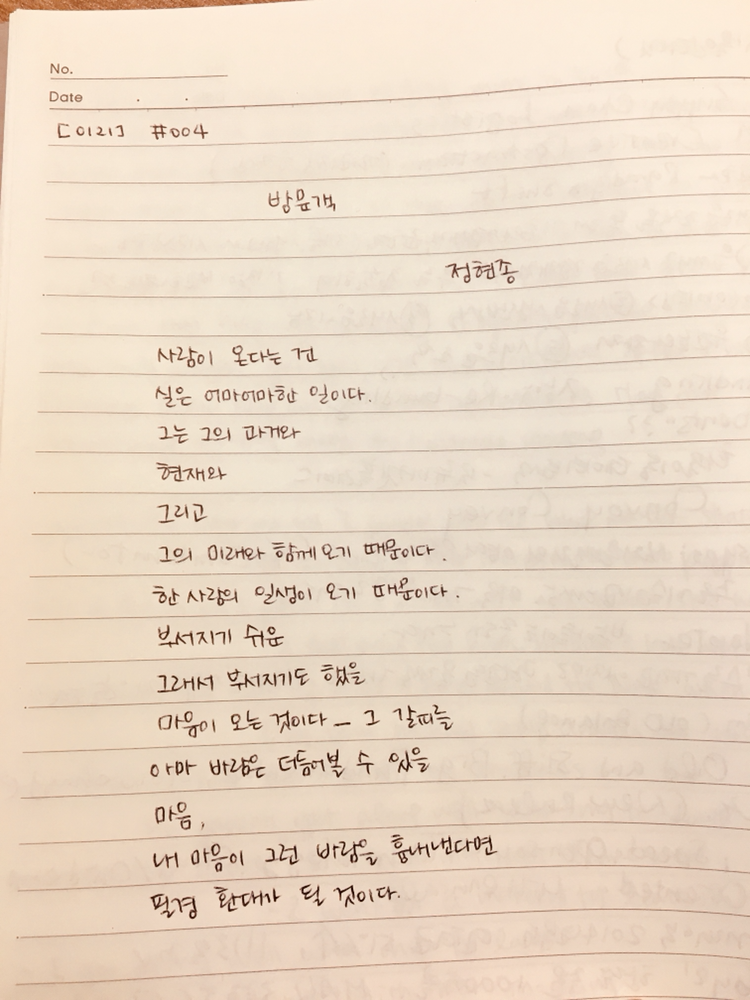 No.
Date . .
[0121] #004
방문객
정현종
사람이 온다는 건
실은 어마어마한 일이다.
그는 그의 과거와
현재와
그리고
그의 미래와 함께 오기 때문이다.
한 사람의 일생이 오기 때문이다.
부서지기 쉬운
그래서 부서지기도 했을
마음이 오는 것이다 - 그 갈피를
아마 바람은 더듬어볼 수 있을
마음,
내 마음이 그런 바람을 흉내낸다면
필경 환대가 될 것이다.